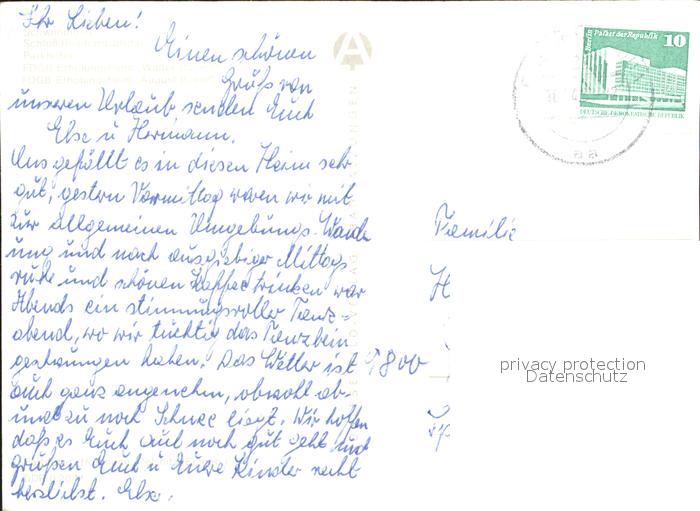 Ihr Lieben!
Einen schönen
Gruß von
unseren Urlaub senden Euch
Else u Hermann.
Uns gefällt es in diesen Heim sehr
gut, gestern Vormittag waren wir mit
zur allgemeinen Umgebungs-Wande
ung und nach ausgiebiger Mittags
ruhe und schönen Kaffeetrinken war
Abends ein stimmungsvoller Tanz=
abend, wo wir tüchtig das Tanzbein
geschwungen haben. Das Wetter ist
auch ganz angenehm, obwohl ab
und zu noch Schnee liegt. Wir hoffen
daß es Euch auch noch gut geht und
grüßen Euch u Euere Kinder recht
herzlichst. Else.
Familie
H
9800
Berlin Palast der Republik 10
DEUTSCHE DEMOKRATISCHE REPUBLIK
aa
privacy protection
Datenschutz